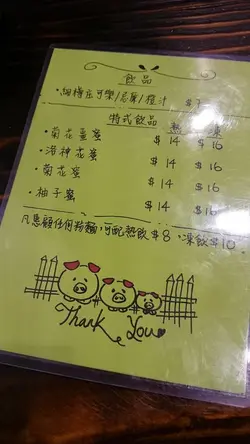 飲品
·細樽庄可樂/忌廉/橙汁 $7
特式飲品 熱 凍
·菊花蜜 $14 $16
·洛神花蜜 $14 $16
·菊花蜜 $14 $16
·柚子蜜 $14 $16
凡惠顧任何粉麵,可配熱飲$8,凍飲$10
Thank You